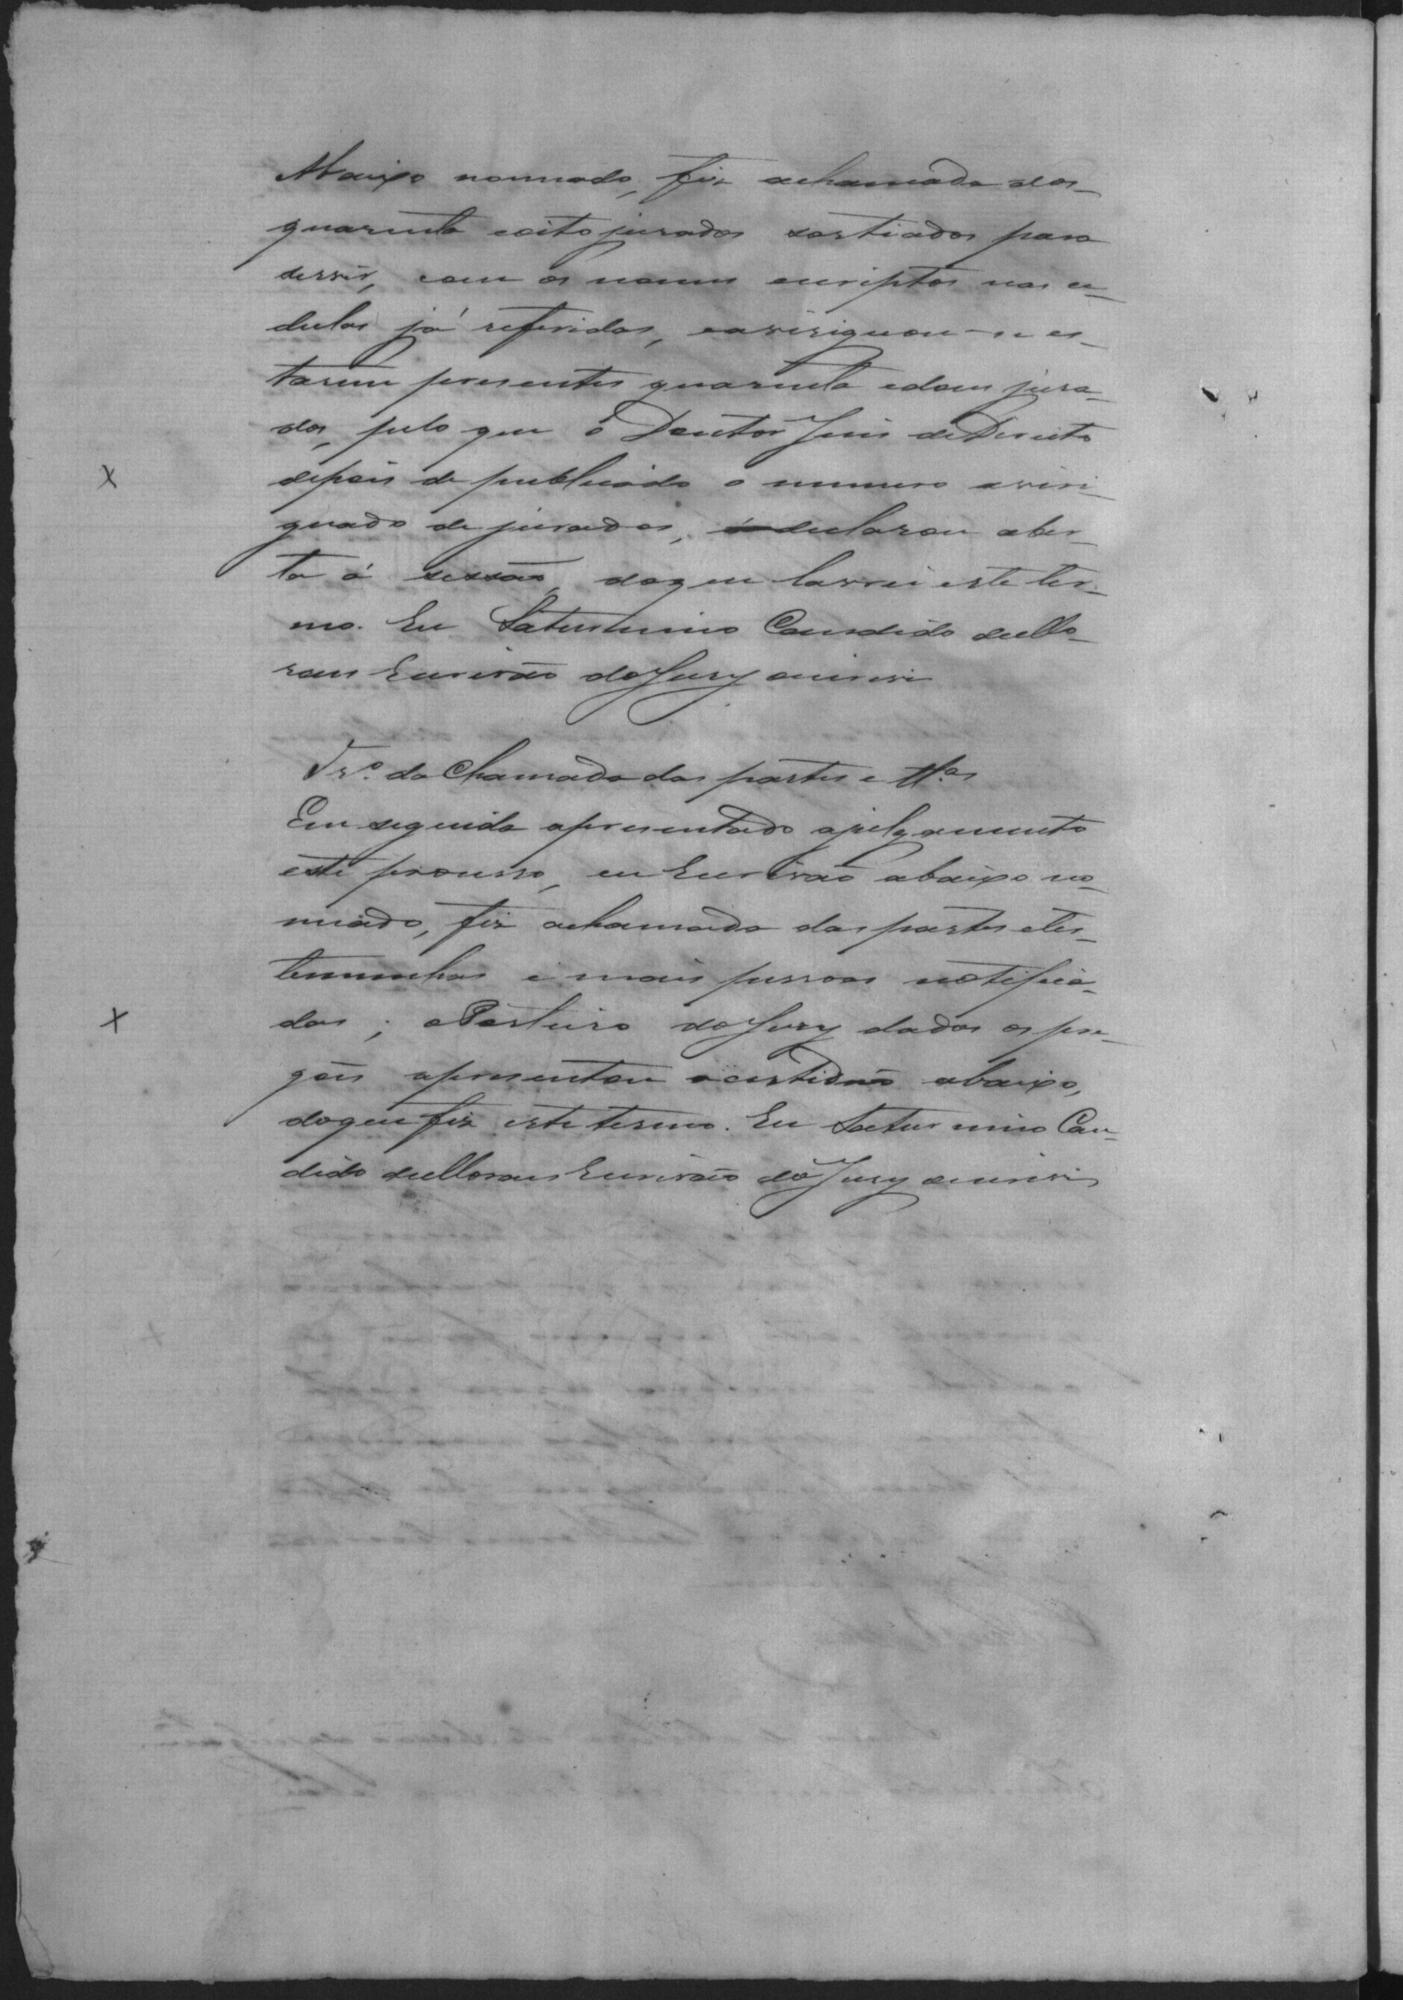 Abaixo nomeado, fiz achamada dos
quarenta eoito jurados sortiados para
servir, com os nomes escriptos nas ce-
dulas já referidas, eavirigou-se es-
tarem presentes quarenta edous jura-
dos, pelo que o Doutor Juis deDireito
depois de publicado o numero aviri-
guado de jurados, declarou aber-
ta á sessão, doque lavrei este ter-
mo. Eu Saturnino Candido deMo-
raes Escrivão doJury oescrevi
Tr.º da Chamada das partes e tt.as
Em seguida apresentado ajulgamento
este processo, eu Escrivão abaixo no-
miado, fiz achamada das partes etes-
temunhas e mais pessoas notifica-
das; oPorteiro doJury dados os pre-
gões apresentou acertidão abaixo,
doque fiz este termo. Eu Saturnino Can-
dido deMoraes Escrivão doJury oescrevi